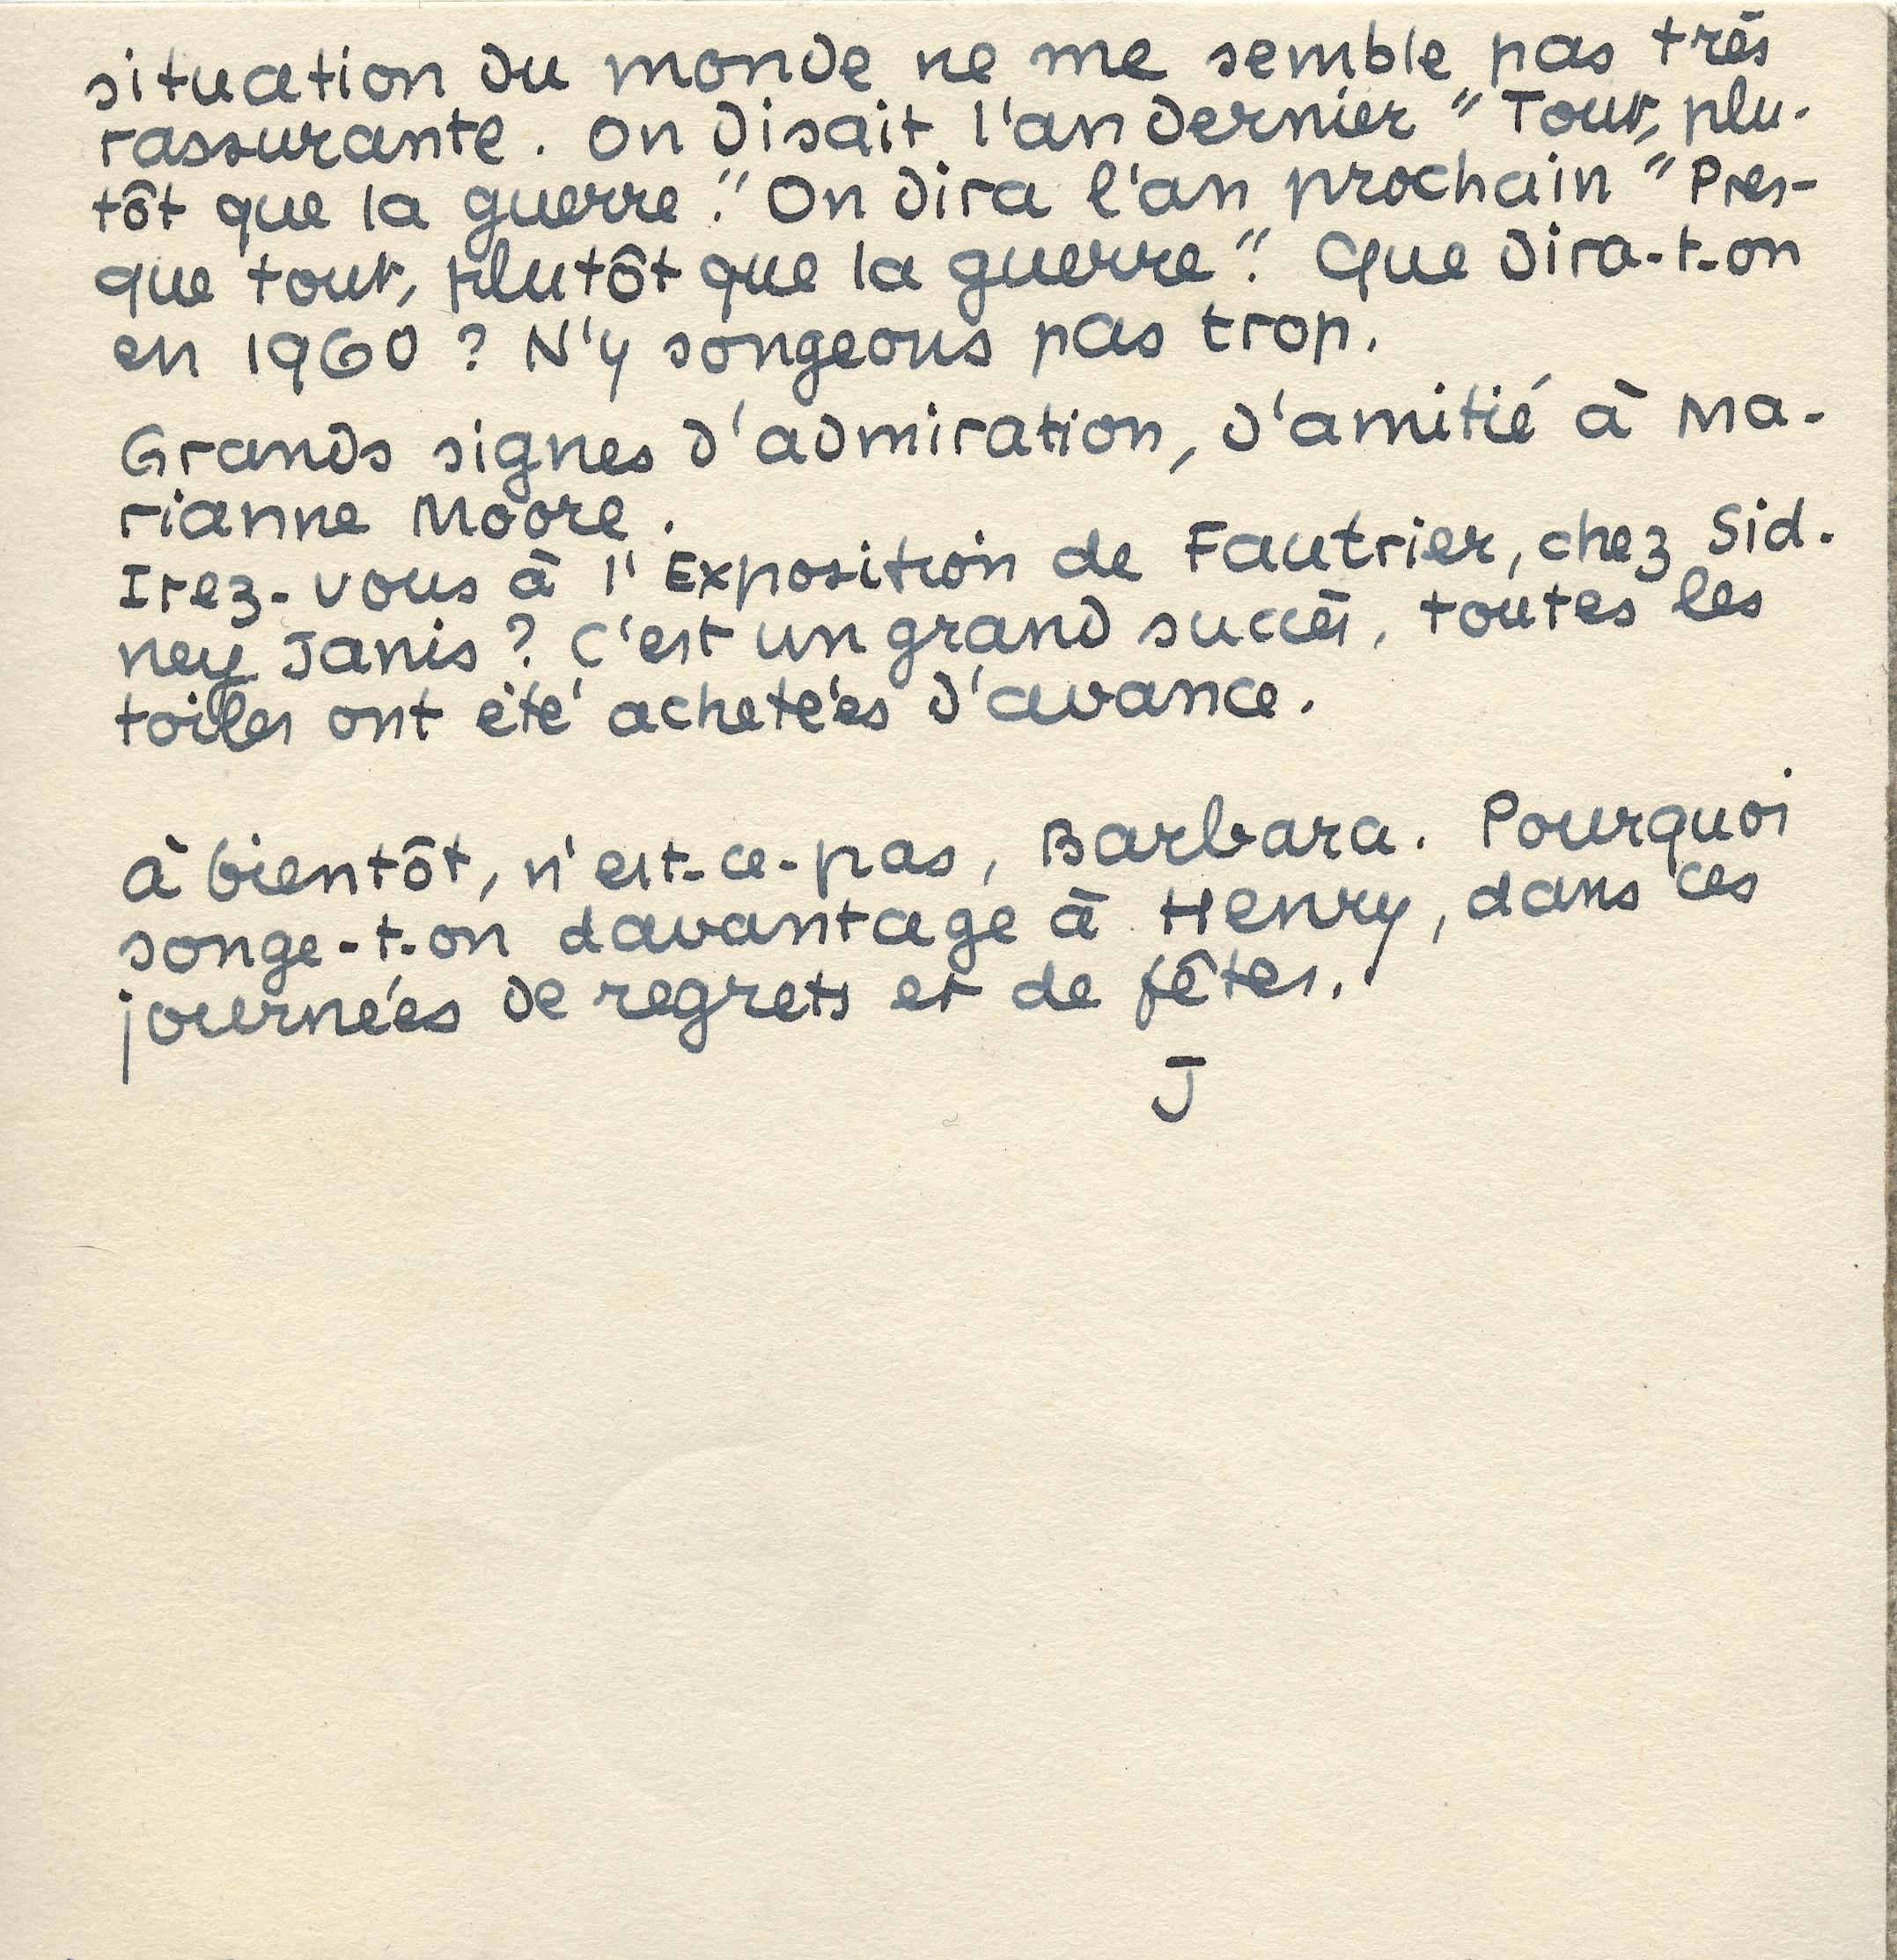 situation du monde ne me semble pas très
rassurante. On disait l'an dernier "Tout, plu-
tôt que la guerre." On dira l'an prochain "Pres-
que tout, plutôt que la guerre". Que dira-t-on
en 1960 ? N'y songeons pas trop.
Grands signes d'admiration, d'amitié à Ma-
rianne Moore.
Irez-vous à l'Exposition de Fautrier, chez Sid-
ney Janis ? C'est un grand succès, toutes les
toiles ont été achetées d'avance.
à bientôt, n'est-ce-pas, Barbara. Pourquoi
songe-t-on davantage à Henry, dans ces
journées de regrets et de fêtes.
J